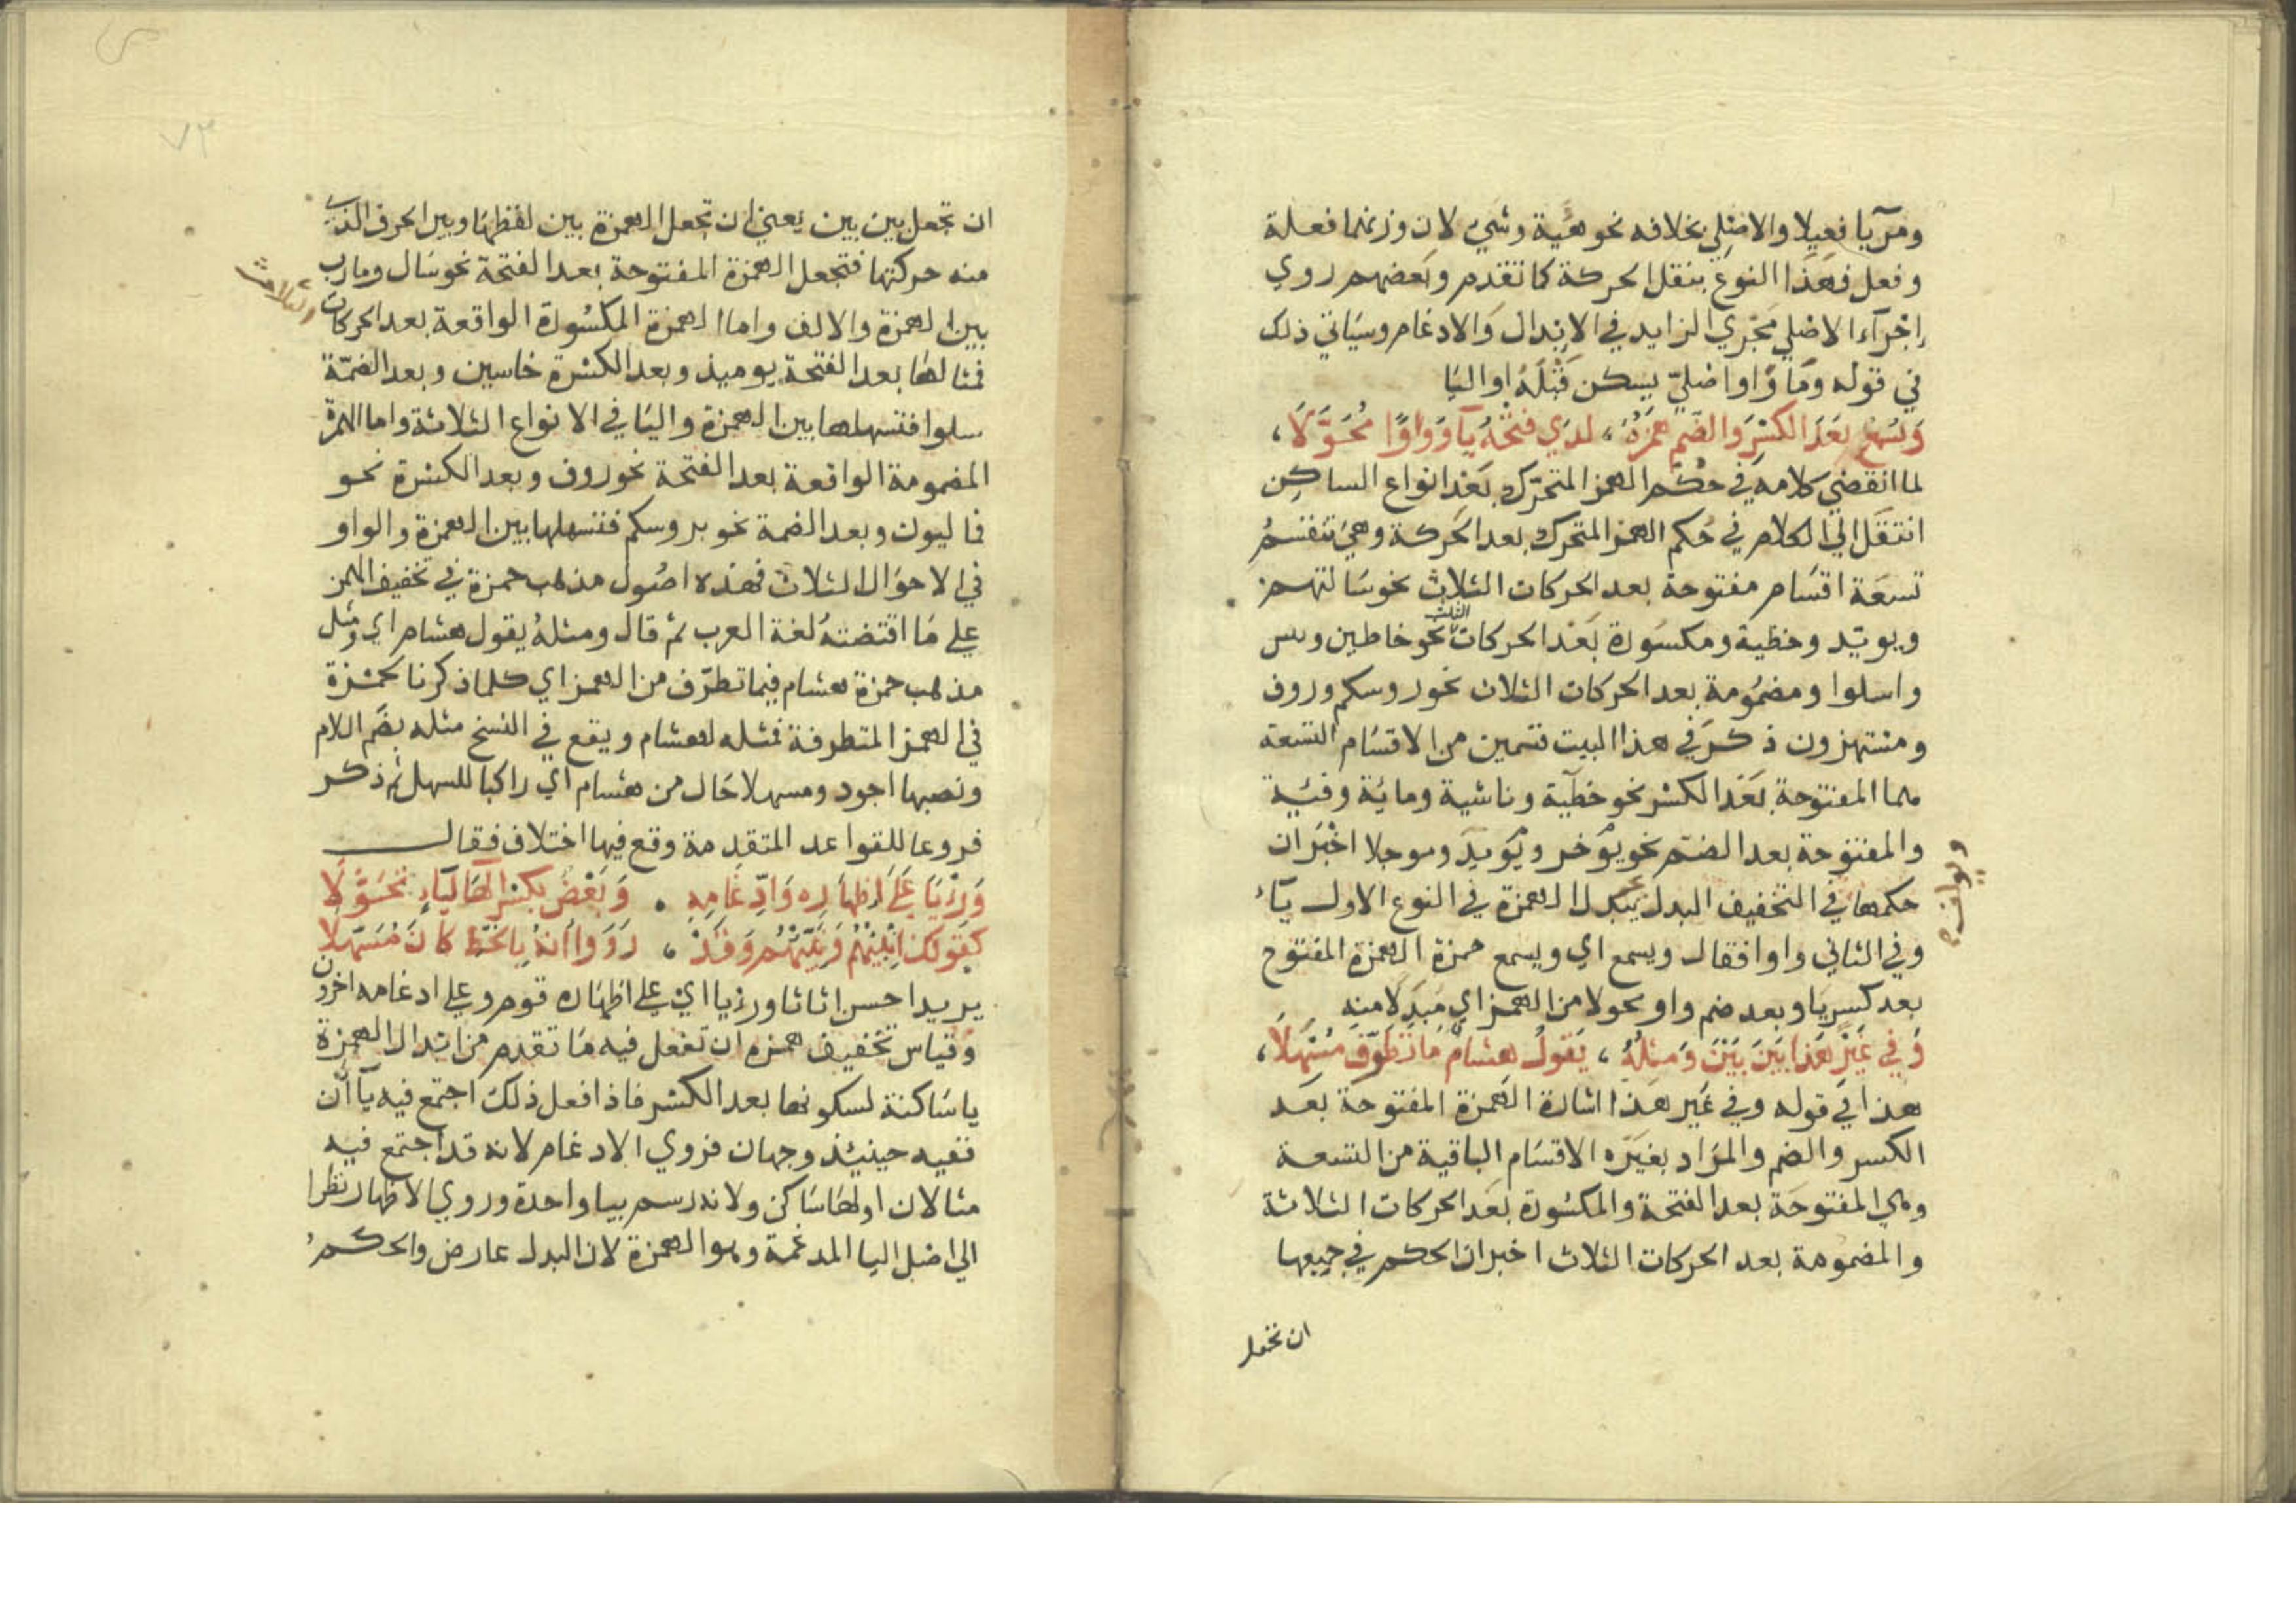 ومرآيا فعيلا والاصلي بخلافه نحو هيئة وشيء لان وزنهما فعلة
وفعل فهذا النوع بنقل الحركة كما تقدم وبعضهم روي
اجرآء الاصلي مجري الزايد في الابدال والادغام وسياتي ذلك
في قوله وما واو اصليّ يسكن قبله او اليا
وَيُسْمِعُ بَعْدَ الكَسْرِ وَالضَّمِ هَمْزَهُ ، لدي فتحه يآء وواوًا مُحَوَّلَا ،
لما انقضي كلامه في حكم الهمز المتحرك بعد انواع الساكن
انتقل الي الكلام في حكم الهمز المتحرك بعد الحركة وهي تنقسمُ
تسعة اقسام مفتوحة بعد الحركات الثلاث نحو سالتهم
ويويد وخطية ومكسورة بعد الحركات الثلث نحو خاطين ويس
واسلوا ومضمومة بعد الحركات الثلاث نحو روسكم وروف
ومستهزون ذكر في هذا البيت قسمين من الاقسام التسعة
هما المفتوحة بعد الكسر نحو خطية وناشية ومائة وفئة
والمفتوحة بعد الضم نحو يوخر ويويد وموجلا اخبر ان
حكمها في التخفيف البدل يبدل الهمزة في النوع الاول يآء
وفي الثاني واوا فقال ويسمع اي ويسمع حمزة الهمزة المفتوح
بعد كسر يا وبعد ضم واو محولا من الهمز اي مبدلا منه
وَفي غَيْرِ هَذَا بَيْنَ بَيْنَ وَمِثْلُهُ ، يَقُولُ هشامٌ مَا تَطَرَّفَ مُسْهِلَا ،
هذا في قوله وفي غير هذا اشارة الهمزة المفتوحة بعد
الكسر والضم والمراد بغيره الاقسام الباقية من التسعة
وهي المفتوحة بعد الفتحة والمكسورة بعد الحركات الثلاثة
والمضمومة بعد الحركات الثلاث اخبر ان الحكم في جميعها
ان تجعل
ان تجعل بين بين يعني ان تجعل الهمزة بين لفظها وبين الحرف الذي
منه حركتها فتجعل الهمزة المفتوحة بعد الفتحة نحو سال ومارب
بين الهمزة والالف واما الهمزة المكسورة الواقعة بعد الحركات
الثلاث
فمثالها بعد الفتحة يوميذ وبعد الكسرة خاسين وبعد الضمّة
سلوا فتسهلها بين الهمزة واليا في الانواع الثلاثة واما الهمزة
المضمومة الواقعة بعد الفتحة نحو روف وبعد الكسرة نحو
فماليون وبعد الضمة نحو بروسكم فتسهلها بين الهمزة والواو
في الاحوال الثلاث فهذه اصول مذهب حمزة في تخفيف الهمز
علي ما اقتضته لغة العرب ثم قال ومثله يقول هشام اي ومثل
مذهب حمزة هشام فيما تطرّف من الهمز اي كلما ذكرنا لحمزة
في الهمز المتطرفة فمثله لهشام ويقع في النسخ مثله بضم اللام
ونصبها اجود ومسهلا حال من هشام اي راكبا للسهل ثم ذكر
فروعا للقواعد المتقدمة وقع فيها اختلاف فقال
وَرِءْيَا عَلَي اِظْهَارِهِ وَادِّغَامِهِ . وَبَعْضٌ بِكَسْرِ الهَا لِيَاءٍ تَحَوَّلَا
كقولك اَنْبِيْهُمْ وَنَبِّيهُمْ وَقَدْ ، رَوَوا اَنهُ بِالخَطِّ كَانَ مُسَهِّلَا
يريد احسن اثاثا ورءيا اي علي اظهاره قوم وعلي ادغامه اخرون
وقياس تخفيف همزه ان تفعل فيه ما تقدم من ابدال الهمزة
يا ساكنة لسكونها بعد الكسر فاذا فعل ذلك اجتمع فيه يآ ان
ففيه حينيذ وجهان فروي الادغام لانه قد اجتمع فيه
مثالان اولها ساكن ولانه رسم بيا واحدة وروي الاظهار نظرا
الي اصل اليا المدغمة وهو الهمزة لان البدل عارض والحكم